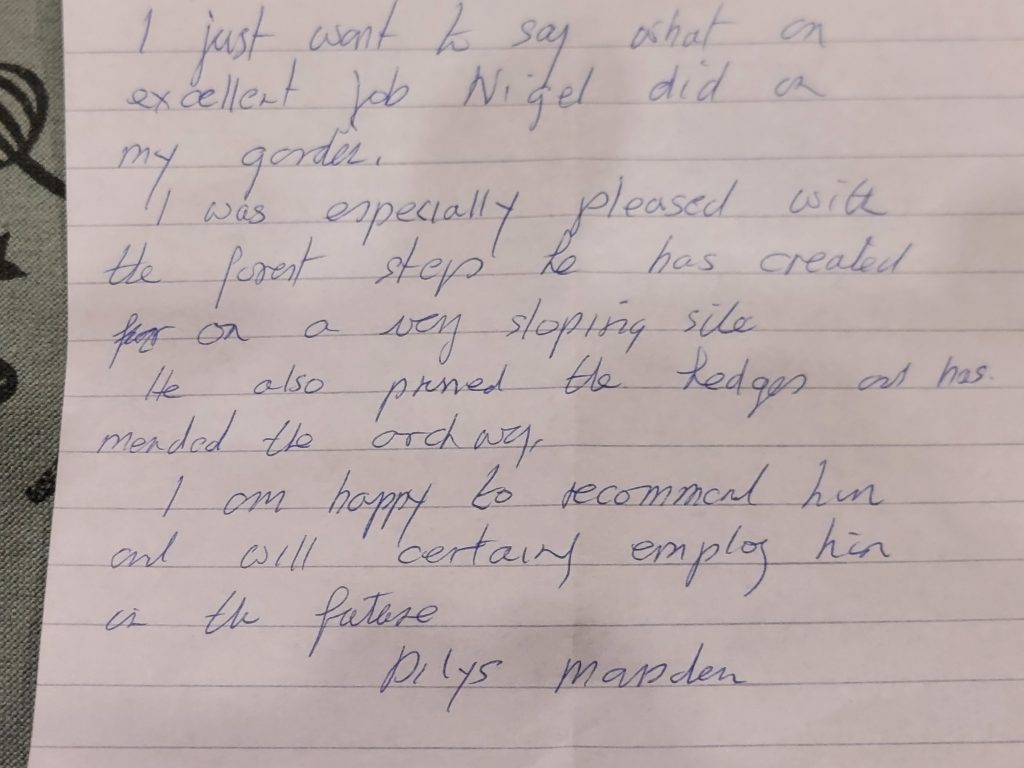 I just want to say what an
excellent job Nigel did on
my garden.
I was especially pleased with
the forest steps he has created
for on a very sloping site
He also pruned the hedges and has
mended the archway.
I am happy to recommend him
and will certainly employ him
in the future
Dilys Marsden